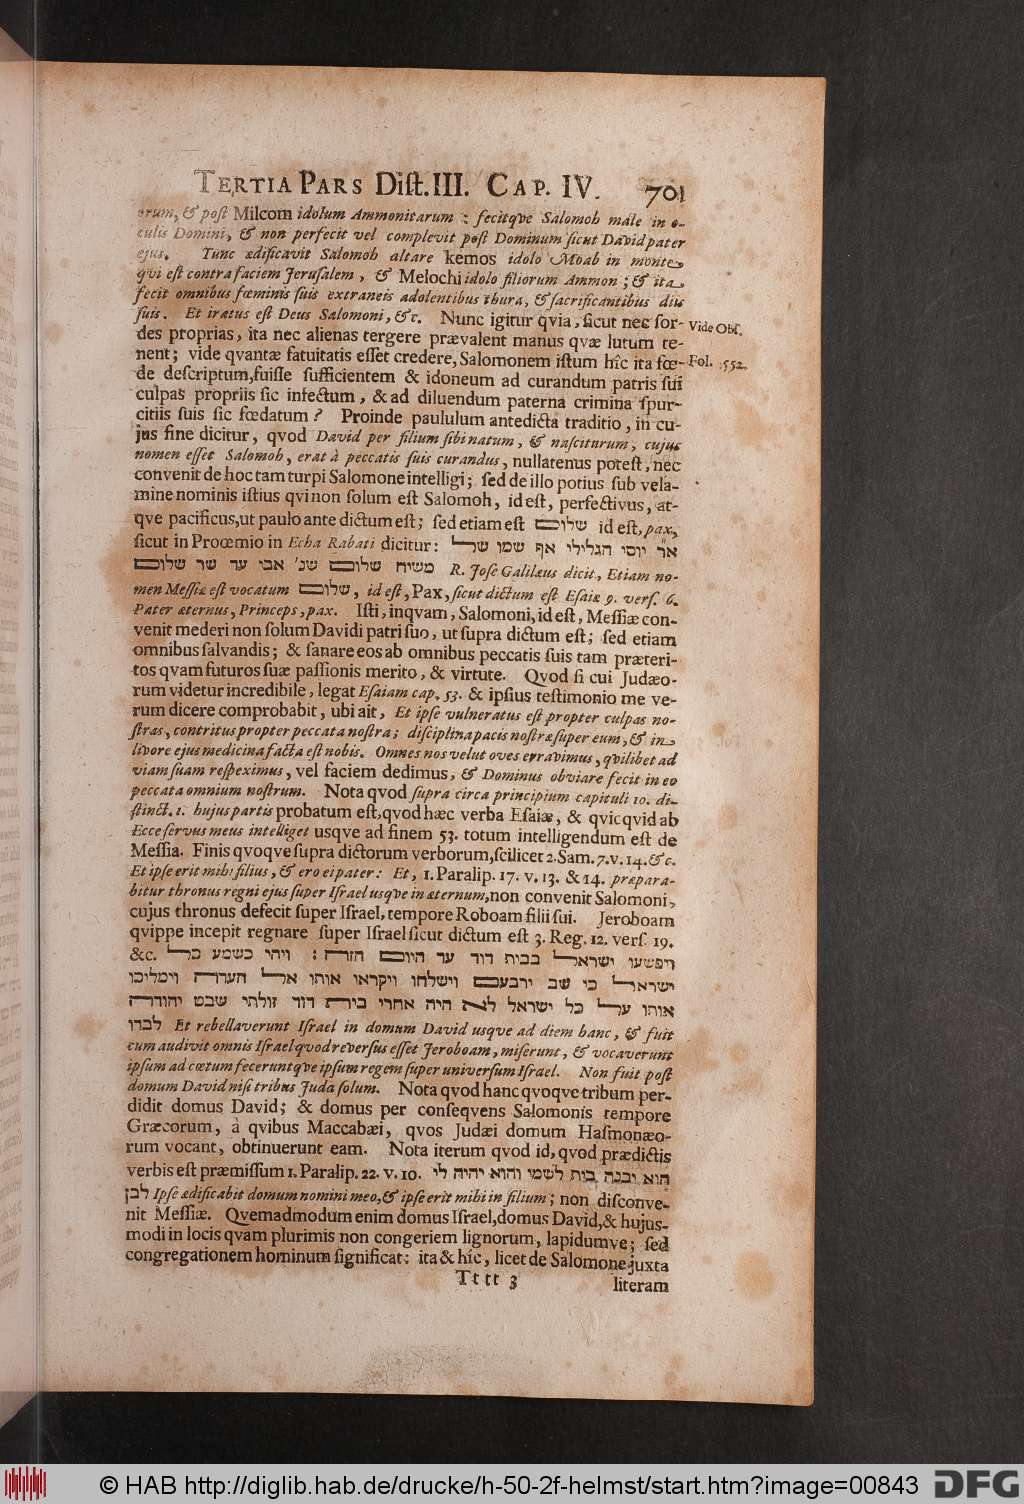 TERTIA PARS Dist. III. CAP. IV. 701
orum, & post Milcom idolum Ammonitarum : fecitqve Salomoh male in o-
culis Domini, & non perfecit vel complevit post Dominum sicut David pater
ejus. Tunc ædificavit Salomoh altare kemos idolo Moab in monte
qvi est contra faciem Jerusalem, & Melochi idolo filiorum Ammon ; & ita
fecit omnibus fœminis suis extraneis adolentibus thura, & sacrificantibus diis
suis. Et iratus est Deus Salomoni, &c. Nunc igitur qvia, sicut nec sor-
des proprias, ita nec alienas tergere prævalent manus qvæ lutum te-
nent; vide qvantæ fatuitatis esset credere, Salomonem istum hîc ita fœ-
de descriptum, fuisse sufficientem & idoneum ad curandum patris sui
culpas propriis sic infectum, & ad diluendum paterna crimina spur-
citiis suis sic fœdatum? Proinde paululum antedicta traditio, in cu-
jus fine dicitur, qvod David per filium sibi natum, & nasciturum, cujus
nomen esset Salomoh, erat à peccatis suis curandus, nullatenus potest, nec
convenit de hoc tam turpi Salomone intelligi; sed de illo potius sub vela-
mine nominis istius qvi non solum est Salomoh, id est, perfectivus, at-
qve pacificus, ut paulo ante dictum est; sed etiam est שלום id est, pax,
sicut in Procemio in Echa Rabati dicitur: אר יוסי הגלילי אף שמו של
משיח שלום שנ' אבי עד שר שלום R. Jose Galilæus dicit, Etiam no-
men Messiæ est vocatum שלום, id est, Pax, sicut dictum est Esaiæ 9. vers. 6.
Pater æternus, Princeps, pax. Isti, inqvam, Salomoni, id est, Messiæ con-
venit mederi non solum Davidi patri suo, ut supra dictum est; sed etiam
omnibus salvandis; & sanare eos ab omnibus peccatis suis tam præteri-
tos qvam futuros suæ passionis merito, & virtute. Qvod si cui Judæo-
rum videtur incredibile, legat Esaiam cap. 53. & ipsius testimonio me ve-
rum dicere comprobabit, ubi ait, Et ipse vulneratus est propter culpas no-
stras, contritus propter peccata nostra; disciplina pacis nostræ super eum, & in
livore ejus medicina facta est nobis. Omnes nos velut oves erravimus, qvilibet ad
viam suam respeximus, vel faciem dedimus, & Dominus obviare fecit in eo
peccata omnium nostrum. Nota qvod supra circa principium capituli 10. di-
stinct. 1. hujus partis probatum est, qvod hæc verba Esaiæ, & qvicqvid ab
Ecce servus meus intelliget usqve ad finem 53. totum intelligendum est de
Messia. Finis qvoqve supra dictorum verborum, scilicet 2. Sam. 7. v. 14. &c.
Et ipse erit mihi filius, & ero ei pater: Et, 1. Paralip. 17. v. 13. & 14. præpara-
bitur thronus regni ejus super Israel usqve in æternum, non convenit Salomoni,
cujus thronus defecit super Israel, tempore Roboam filii sui. Jeroboam
qvippe incepit regnare super Israel sicut dictum est 3. Reg. 12. vers. 19.
&c. ויפשעו ישראל בבית דוד עד היום הזה : ויהי כשמע כל
ישראל כי שב ירבעם וישלחו ויקראו אותו אל העדה וימליכו
אותו על כל ישראל לא היה אחרי בית דוד זולתי שבט יהודה
לבדו Et rebellaverunt Israel in domum David usque ad diem hanc, & fuit
cum audivit omnis Israel quod reversus esset Jeroboam, miserunt, & vocaverunt
ipsum ad cœtum feceruntqve ipsum regem super universum Israel. Non fuit post
domum David nisi tribus Juda solum. Nota qvod hanc qvoqve tribum per-
didit domus David; & domus per conseqvens Salomonis tempore
Græcorum, à qvibus Maccabæi, qvos Judæi domum Hasmonæo-
rum vocant, obtinuerunt eam. Nota iterum qvod id, qvod prædictis
verbis est præmissum 1. Paralip. 22. v. 10. הוא יבנה בית לשמי והוא יהיה לי
לבן Ipse ædificabit domum nomini meo, & ipse erit mihi in filium; non disconve-
nit Messiæ. Qvemadmodum enim domus Israel, domus David, & hujus-
modi in locis qvam plurimis non congeriem lignorum, lapidumve; sed
congregationem hominum significat: ita & hîc, licet de Salomone juxta
Tt tt 3 literam
Vide Obs.
Fol. 552.
© HAB http://diglib.hab.de/drucke/h-50-2f-helmst/start.htm?image=00843 DFG